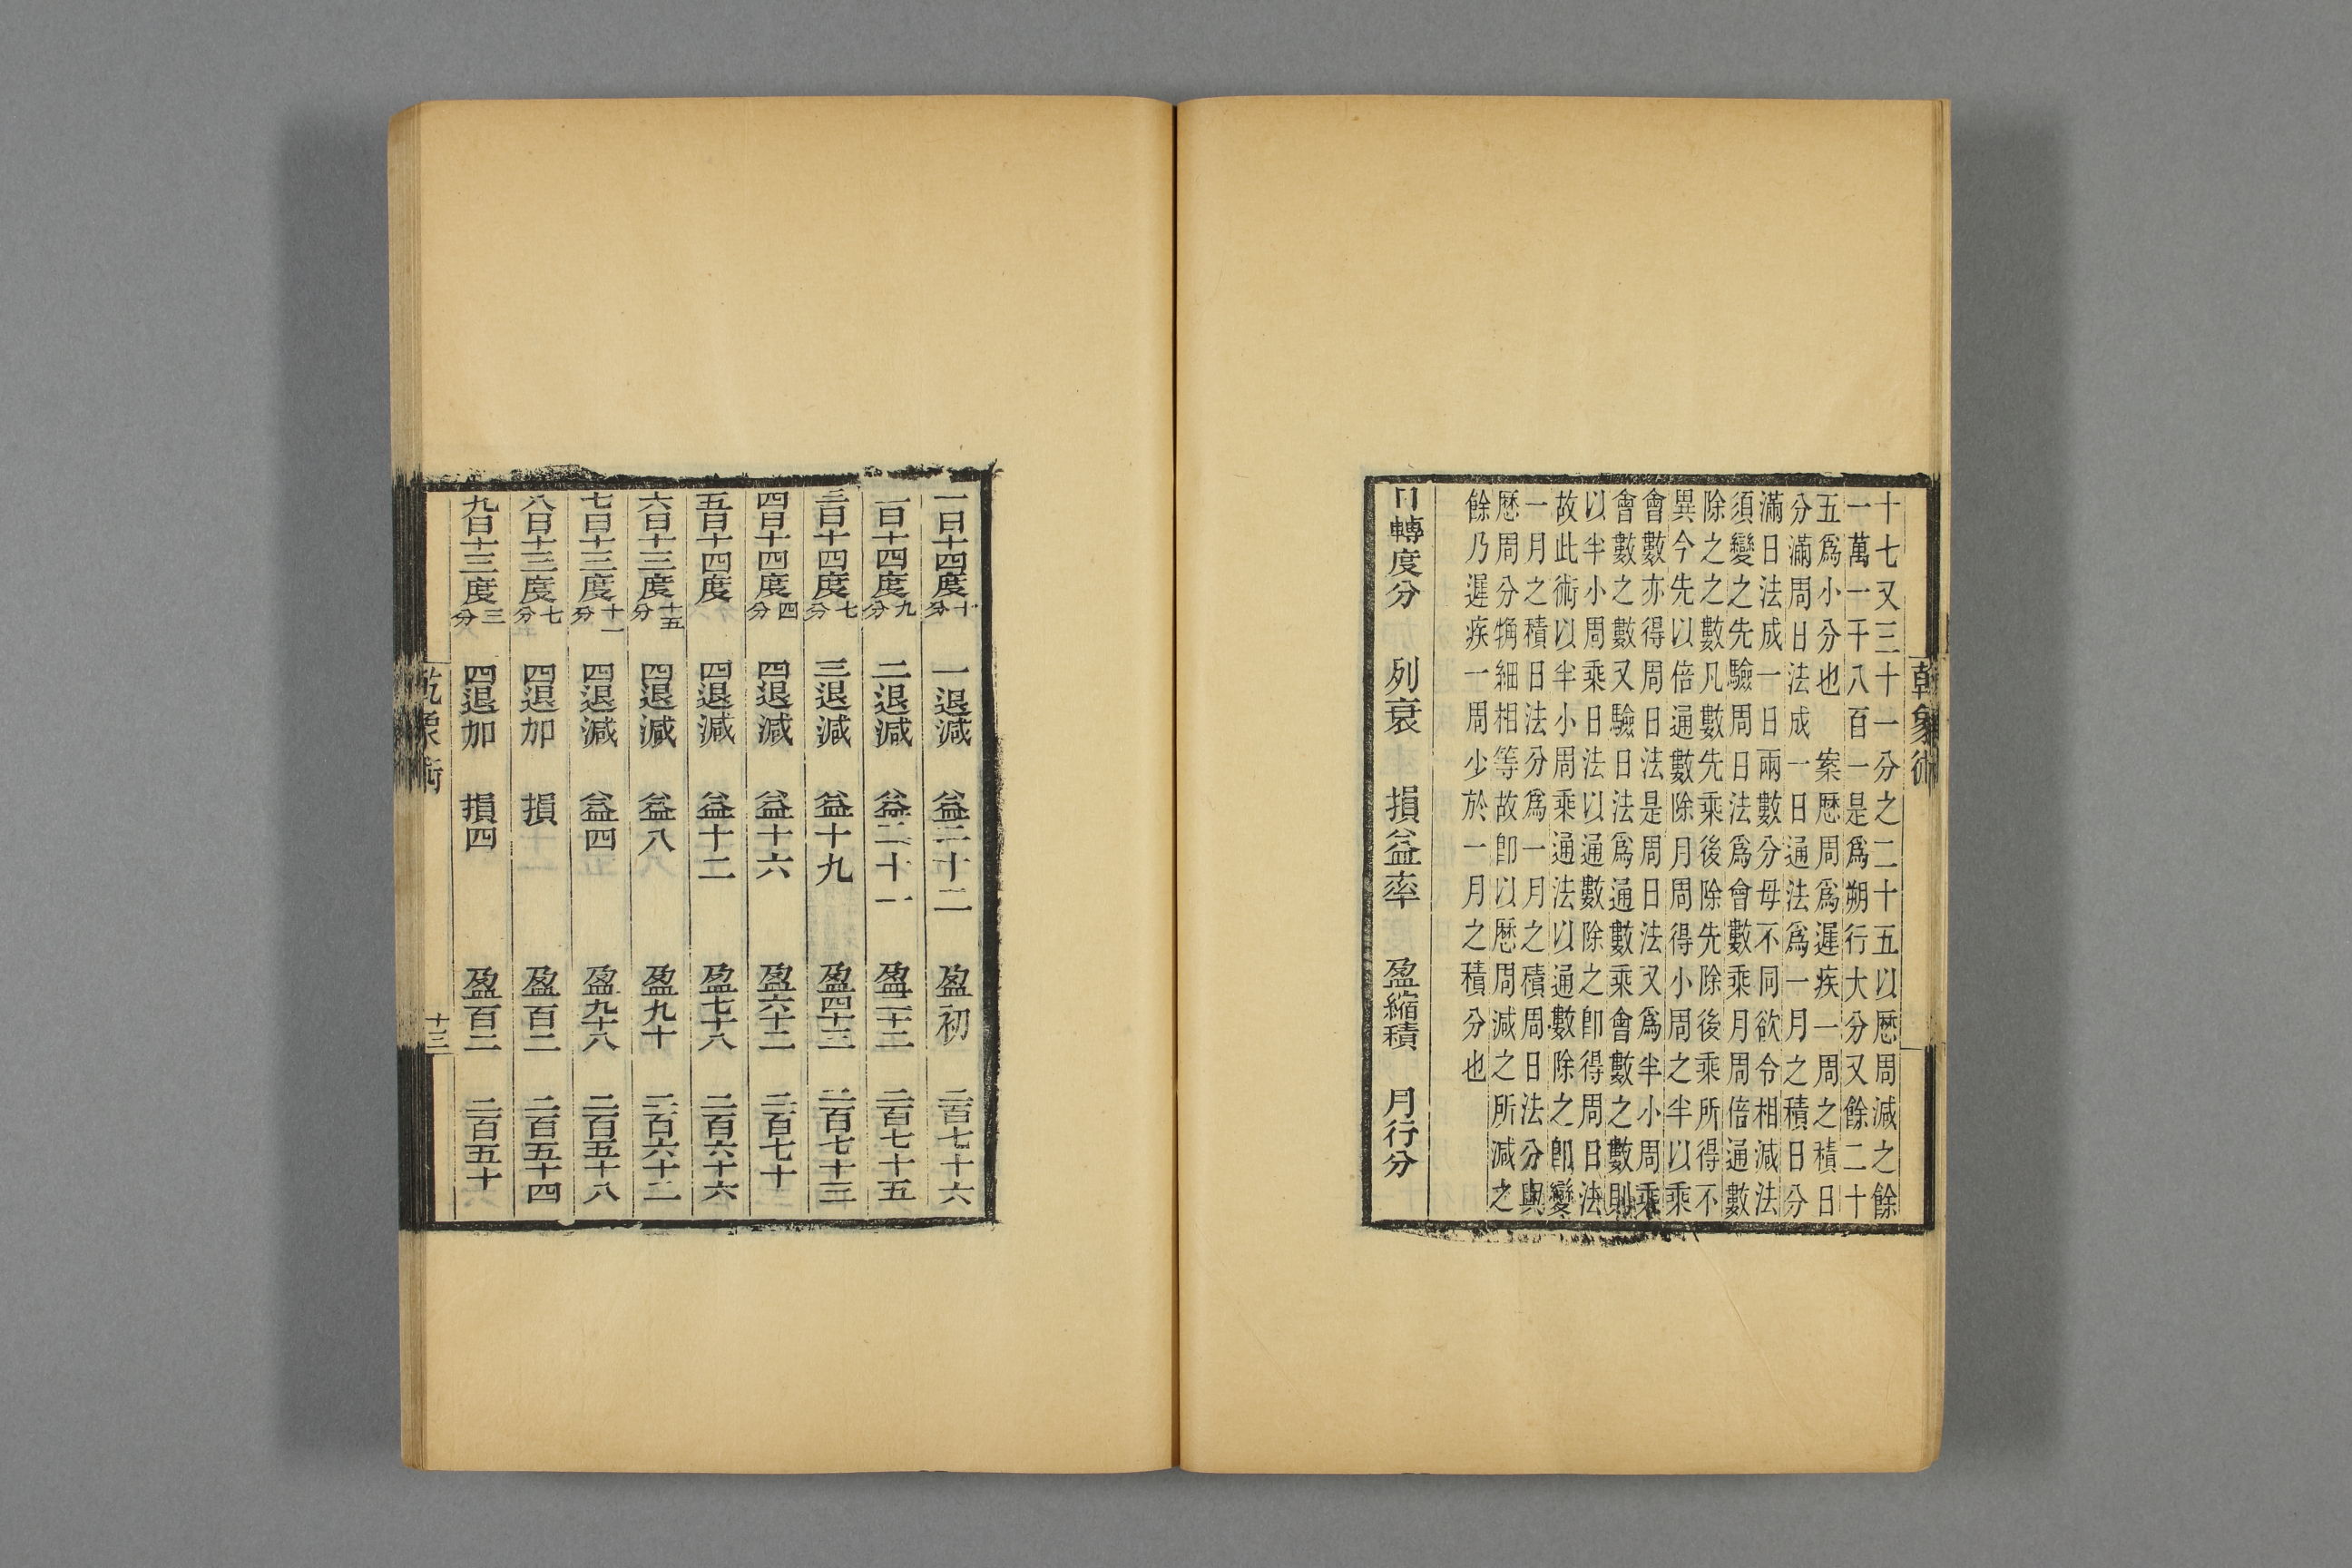 乾象術
十七又三十一分之二十五以厯周減之餘
一萬一千八百一是爲朔行大分又餘二十
五爲小分也　案厯周爲遲疾一周之積日
分滿周日法成一日通法爲一月之積日分
滿日法成一日兩數分母不同欲令相減法
須變之先驗周日法爲會數乘月周倍通數
除之之數凡數先乘後除先除後乘所得不
異今先以倍通數除月周得小周之半以乘
會數亦得周日法是周日法又爲半小周乘
會數之數又驗日法爲通數乘會數之數則
以半小周乘日法以通數除之卽得周日法
故此術以半小周乘通法以通數除之卽變
一月之積日法分爲一月之積周日法分與
厯周分觕細相等故卽以厯周減之所減之
餘乃遲疾一周少於一月之積分也
日轉度分　列衰　損益率　盈縮積　月行分
一日十四度十分　一退減　益二十二　盈初　二百七十六
二日十四度九分　二退減　益二十一　盈二十二　二百七十五
三日十四度七分　三退減　益十九　盈四十三　二百七十三
四日十四度四分　四退減　益十六　盈六十二　二百七十
五日十四度　四退減　益十二　盈七十八　二百六十六
六日十三度十五分　四退減　益八　盈九十　二百六十二
七日十三度十一分　四退減　益四　盈九十八　二百五十八
八日十三度七分　四退加　損　盈百二　二百五十四
九日十三度三分　四退加　損四　盈百二　二百五十
乾象術
十三